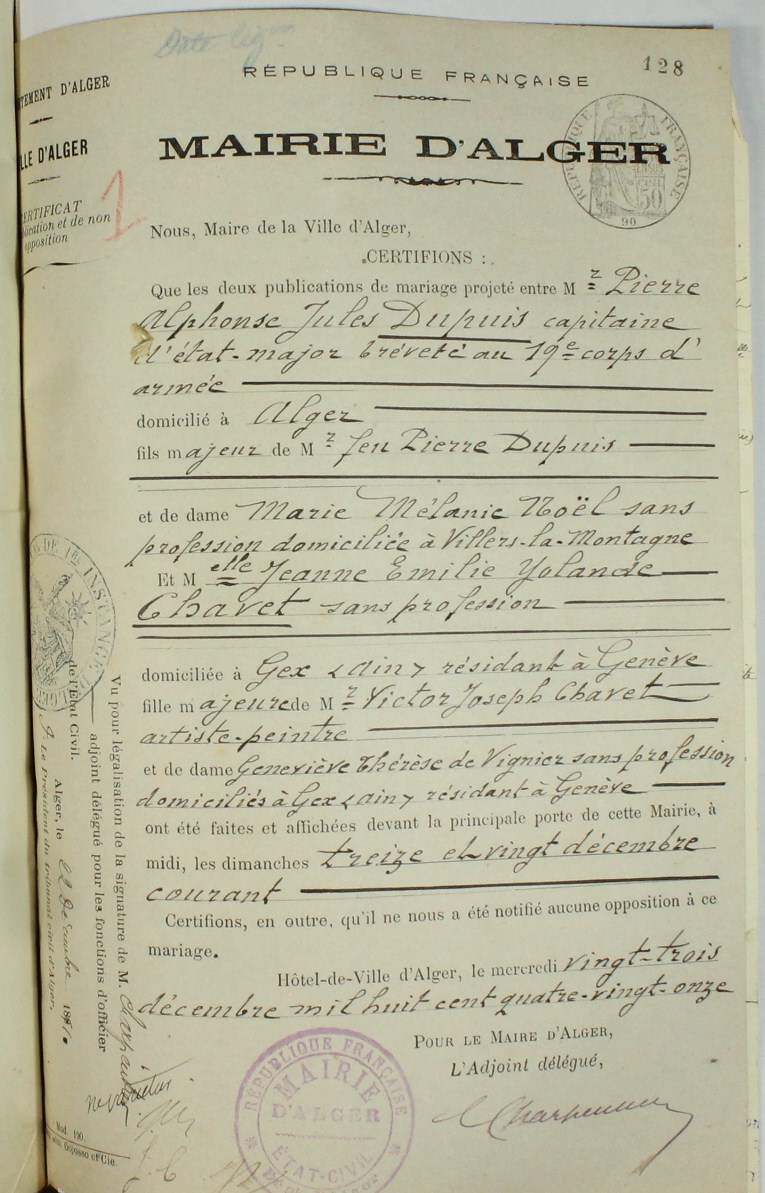 128
RÉPUBLIQUE FRANÇAISE
TEMENT D'ALGER
LLE D'ALGER
ERTIFICAT
ication et de non
pposition
1
MAIRIE D'ALGER
RÉPUBLIQUE FRANÇAISE
50
90
Nous, Maire de la Ville d'Alger,
CERTIFIONS :
Que les deux publications de mariage projeté entre Mr Pierre
Alphonse Jules Dupuis capitaine
d'état-major bréveté au 19e corps d'
armée
domicilié à Alger
fils majeur de Mr feu Pierre Dupuis
et de dame Marie Mélanie Noël sans
profession domiciliée à Villers-la-Montagne
Et Melle Jeanne Emilie Yolande
Chavet sans profession
domiciliée à Gex <ain> résidant à Genève
fille majeure de Mr Victor Joseph Chavet
artiste-peintre
et de dame Geneviève Thérèse de Vignier sans profession
domiciliés à Gex <ain> résidant à Genève
ont été faites et affichées devant la principale porte de cette Mairie, à
midi, les dimanches treize et vingt décembre
courant
Certifions, en outre, qu'il ne nous a été notifié aucune opposition à ce
mariage.
Hôtel-de-Ville d'Alger, le mercredi vingt-trois
décembre mil huit cent quatre-vingt-onze
POUR LE MAIRE D'ALGER,
L'Adjoint délégué,
RÉPUBLIQUE FRANÇAISE
MAIRIE
D'ALGER
ÉTAT-CIVIL
Vu pour légalisation de la signature de M.
adjoint délégué pour les fonctions d'officier
de l'État Civil.
Alger, le
Le Président du tribunal civil d'Alger,
DE 1re INSTANCE
Mod. 190.
et Cie.